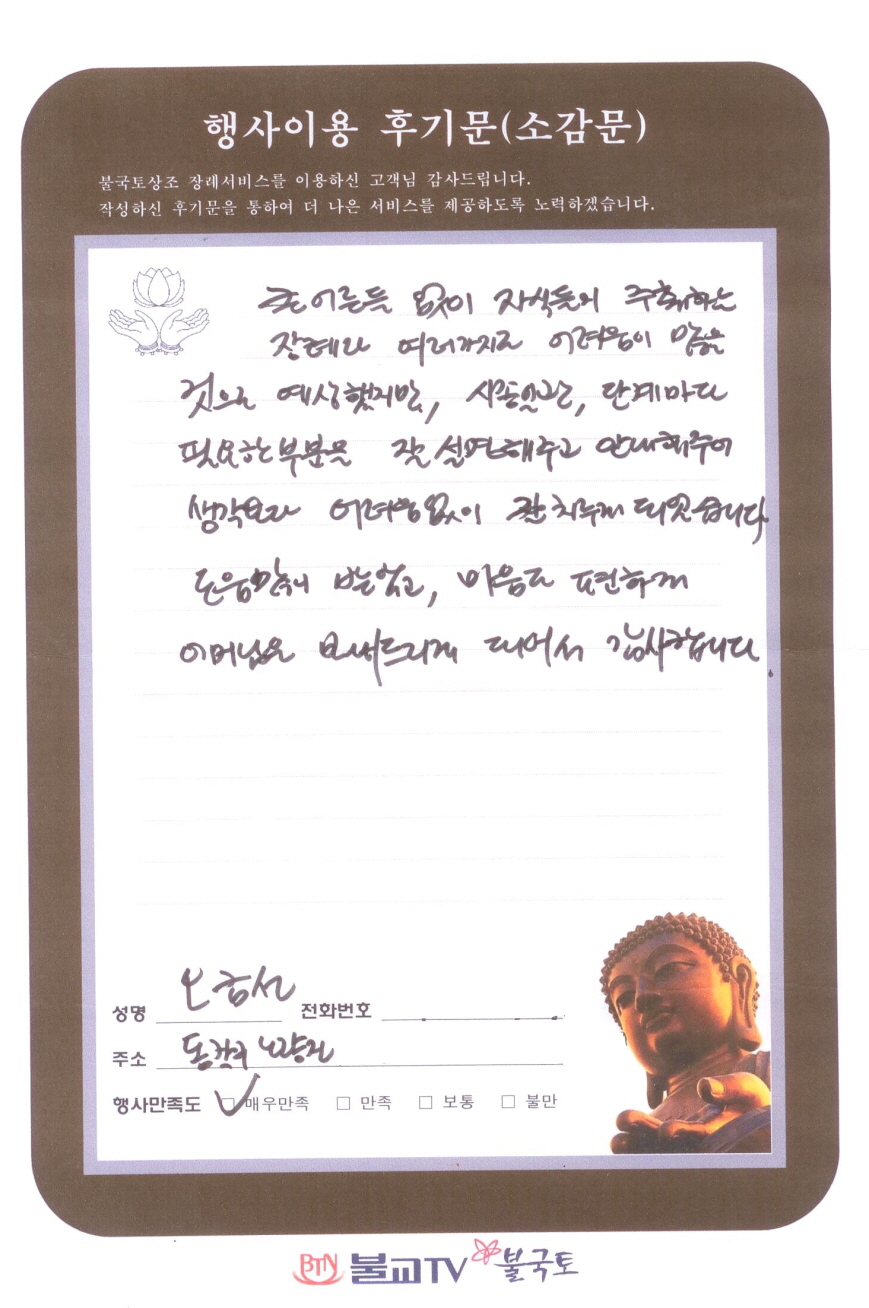 행사이용 후기문(소감문)
불국토상조 장례서비스를 이용하신 고객님 감사드립니다.
작성하신 후기문을 통하여 더 나은 서비스를 제공하도록 노력하겠습니다.
큰 어른들 없이 자식들이 주최하는
장례라 여러가지로 어려움이 많을
것으로 예상했지만, 단계마다
필요한 부분을 잘 설명해주고 안내해주어
생각보다 어려움없이 잘 치루게 되었습니다
도움많이 받았고, 마음도 편하게
어머님을 보내드리게 되어서 감사합니다
성명 오금선 전화번호
주소 동작구 노량진
행사만족도 매우만족 만족 보통 불만
BTN 불교TV 불국토